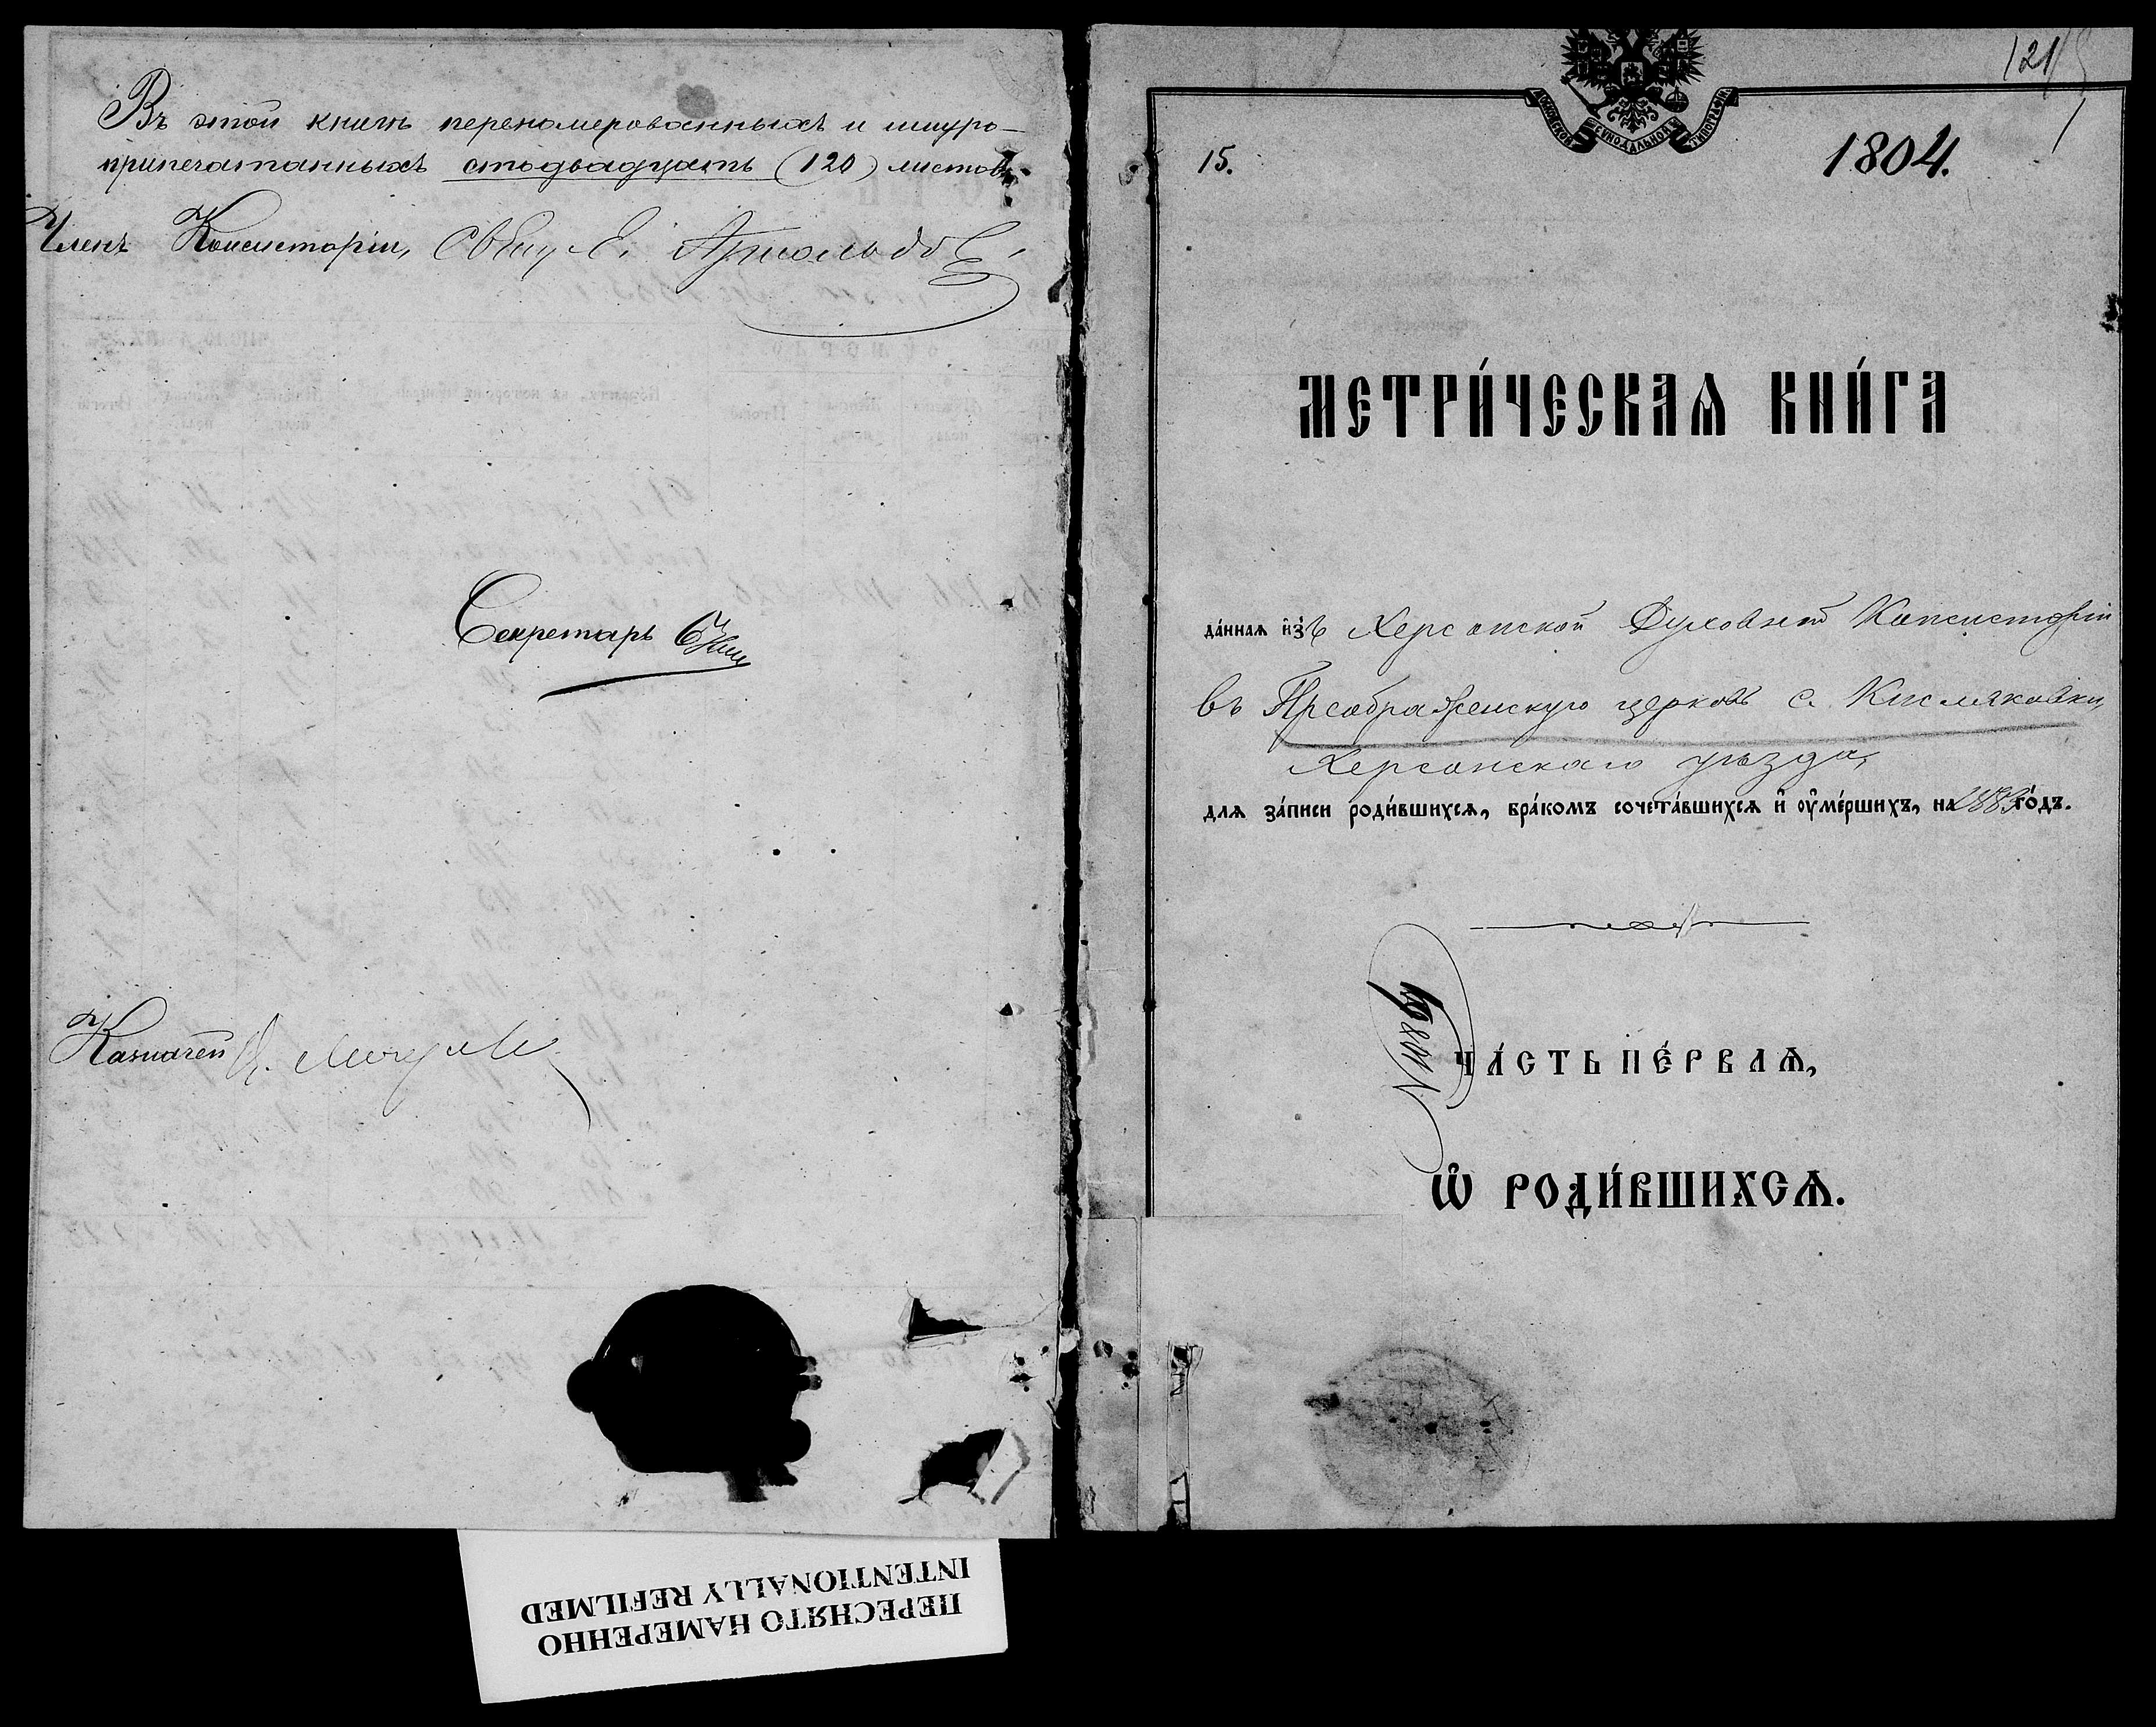 Въ этой книгѣ перенумерованныхъ и шнуро-
припечатанныхъ стодвадцать (120) листовъ
Членъ Консисторіи,
Секретарь
Казначей
121
15.
1804.
МОСКОВСКОЙ СѴНОДАЛЬНОЙ ТИПОГРАФІИ
МЕТРИ́ЧЕСКАѦ КНИ́ГА
да́ннаѧ и҆зъ Херсонской Духовной Консисторіи
въ Преображенскую церковь с. Кисляковки,
Херсонскаго уѣзда,
длѧ за́писи роди́вшихсѧ, бра́комъ сочета́вшихсѧ и҆ ᲂу҆ме́ршихъ, на 1883 го́дъ.
ЧА́СТЬ ПЕ́РВАѦ,
Ѡ҆ РОДИ́ВШИХСѦ.
ПЕРЕСНЯТО НАМЕРЕННО
INTENTIONALLY REFILMED